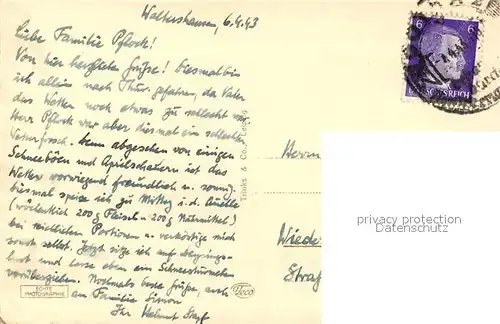 Waltershausen, 6.4.43
Liebe Familie Pflock!
Von hier herzliche Grüße! Diesmal bin
ich allein nach Thür. gefahren, da Vater
das Wetter noch etwas zu schlecht war.
Herr Pflock war aber diesmal ein schlechter
Wetterfrosch, denn abgesehen von einigen
Schneeböen und Aprilschauern ist das
Wetter vorwiegend freundlich u. sonnig.
Diesmal speise ich zu Mittag i. d. Quelle
(wöchentlich 200 g Fleisch - 200 g Nährmittel)
bei reichlichen Portionen u. verköstige mich
sonst selbst. Jetzt sitze ich auf
und lasse eben ein Schneestürmchen
vorüberziehen. Nochmals beste Grüße, auch
an Familie Simon
Ihr Helmut
ECHTE
PHOTOGRAPHIE
Trinks & Co., Leipzig
Teco
6
6
Herrn
Wiede
Straß
privacy protection
© ansichtskartenversand.com